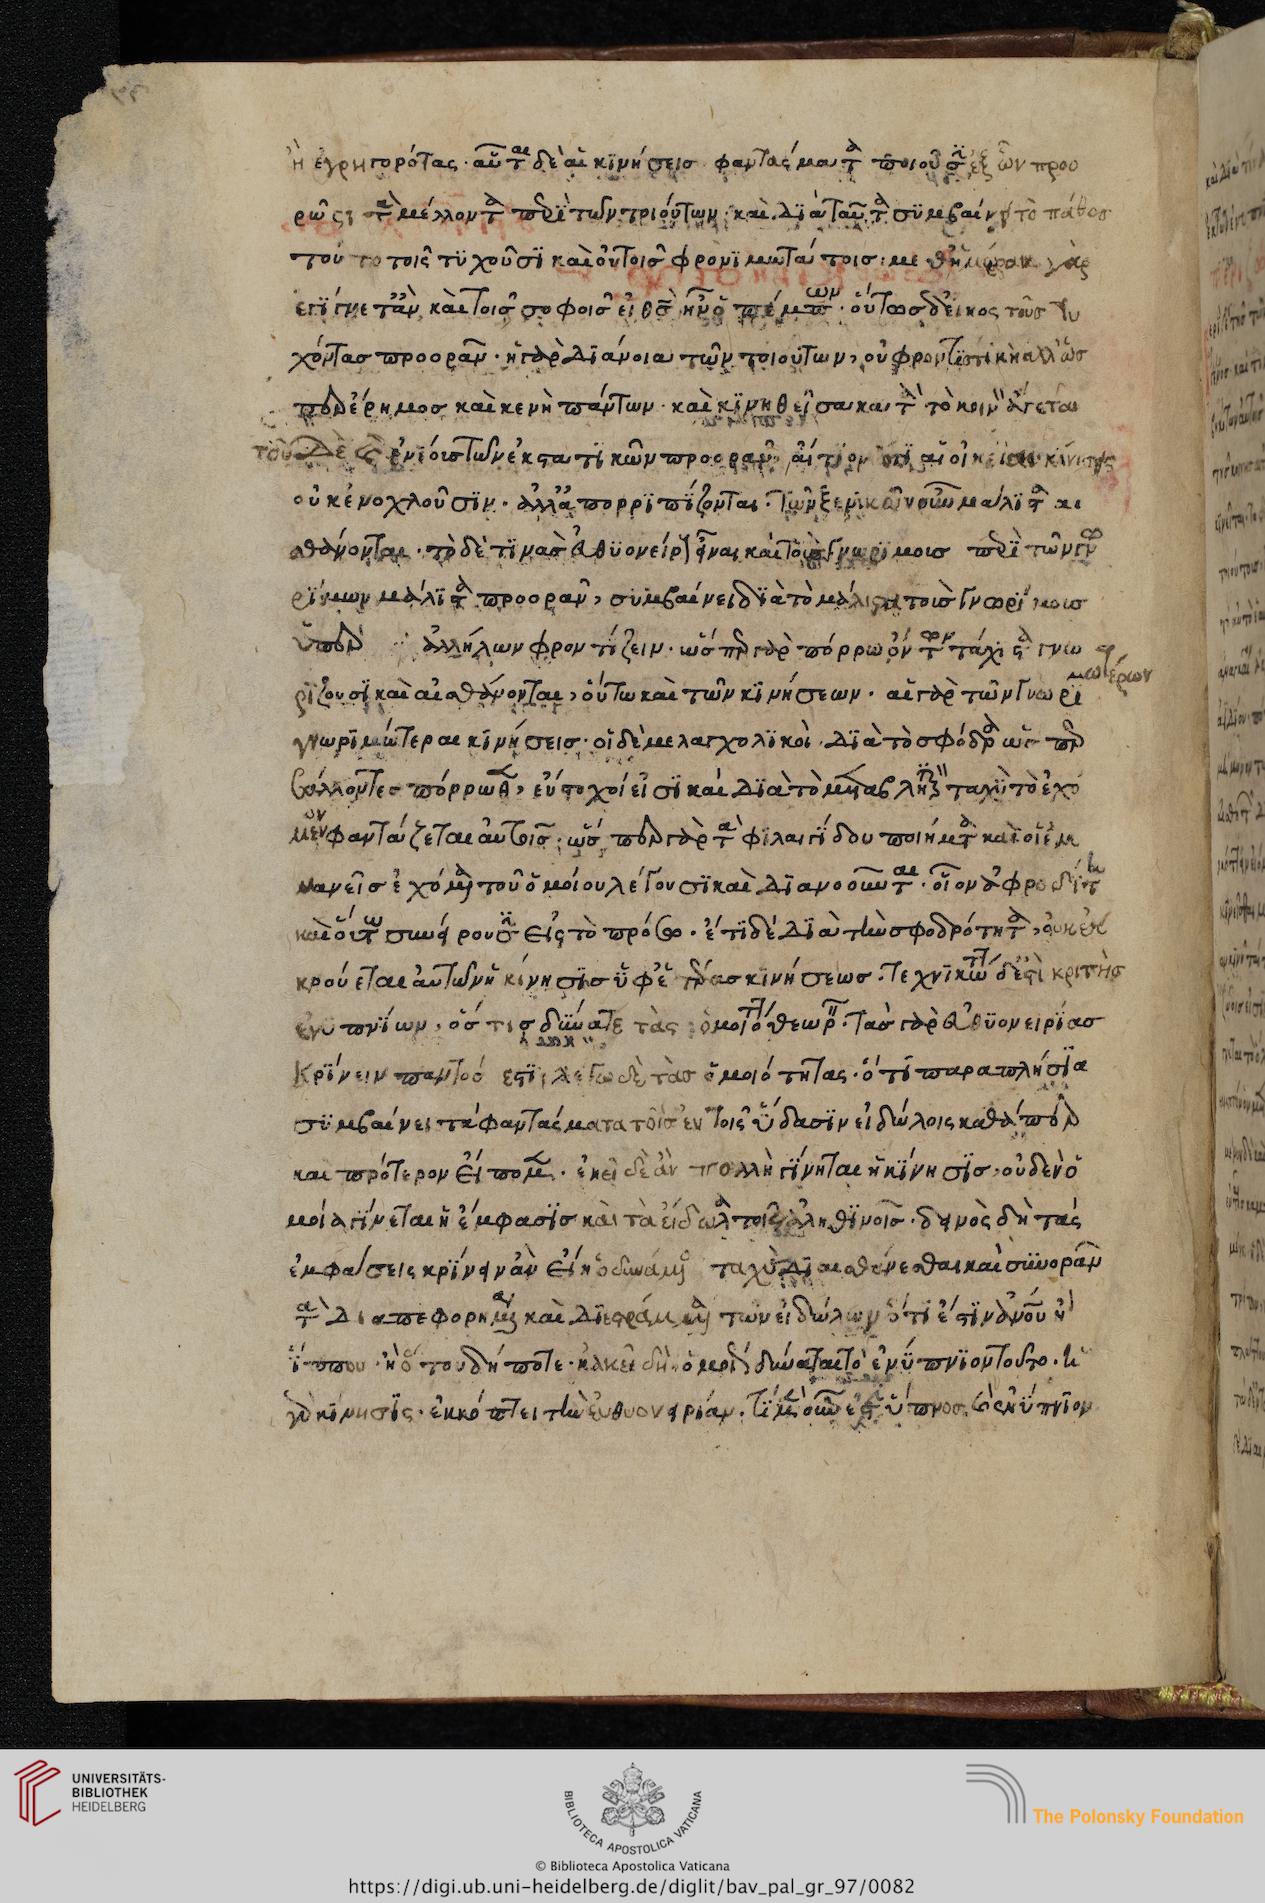 ἢ ἐγρηγορότας· αὗται δὲ αἱ κϊνήσεισ φαντάσματα ποιοῦσιν ἐξ ὧν προο
ρῶσι τὰ μέλλοντα περὶ τῶν τοιούτων· καὶ διὰ ταῦτα συμβαίνει τὸ πάθοσ
τοῦτο τοῖς τυχοῦσϊ καὶ οὐ τοῖσ φρονϊμωτάτοισ· μεθ' ἡμέραν γὰρ
ἐγίγνετ' ἂν καὶ τοῖσ σοφοῖσ εἰ θσ ἦν ὁ πέμπων· οὕτωσ δ' εἰκος τοὺσ τυ
χόντασ προορᾶν· ἡ γὰρ διάνοια τῶν τοιούτων, οὐ φροντϊστϊκὴ ἀλλ' ὥσ
περ ἔρημοσ καὶ κενὴ πάντων· καὶ κϊνηθεῖσα κατὰ τὸ κινοῦν ἄγεται
τοῦ δὲ ἐνίουσ τῶν ἐκστατϊκῶν προορᾶν, αἴτιον ὅτϊ αἱ οἰκεῖαι κινήσεις
οὐκ ἐνοχλοῦσϊν· ἀλλ' ἀπορρϊπίζονται· τῶν ξενικῶν οὖν μάλιστα αι
σθάνονται· τὸ δὲ τϊνασ εὐθυονείρους εἶναι καὶ τοὺσ γνωρίμουσ περὶ τῶν γν
ωρίμων μάλιστα προορᾶν, συμβαίνει διὰ τὸ μάλιστα τοὺσ γνωρίμουσ
ὑπὲρ ἀλλήλων φροντίζειν· ὥσπερ γὰρ πόρρω ὄντων τάχιστα γνω
ρίζουσϊ καὶ αἰσθάνονται, οὕτω καὶ τῶν κϊνήσεων· αἱ γὰρ τῶν γνωρι
μωτέρων
γνωρϊμώτεραι κϊνήσεις· οἱ δὲ μελαγχολϊκοὶ διὰ τὸ σφόδρα ὥσπερ
βάλλοντεσ πόρρωθεν, εὔστοχοί εἰσϊ καὶ διὰ τὸ μεταβλητϊκὸν ταχὺ τὸ ἐχό
μενον φαντάζεται αὐτοῖσ· ὥσπερ γὰρ τὰ φϊλαιγίδου ποιήματα καὶ οἱ ἐμ
μανεῖσ ἐχόμενα τοῦ ὁμοίου λέγουσϊ καὶ διανοοῦνται· οἷον ἀφροδίτην
καὶ οὕτω συνείρουσϊν εἰς τὸ πρόσω· ἔτϊ δὲ διὰ τὴν σφοδρότητα, οὐκ ἐκ
κρούεται αὐτῶν ἡ κίνησϊσ ὑφ' ἑτέρασ κϊνήσεωσ· τεχνϊκώτατος δ' ἐστὶ κριτὴσ
ἐνυπνίων, ὅστισ δύναται τὰς ὁμοιότητας θεωρεῖν· τὰσ γὰρ εὐθυονειρίασ
κρίνειν παντόσ ἐστϊ· λέγω δὲ τὰσ ὁμοιότητας· ὅτϊ παραπλήσϊα
συμβαίνει τὰ φαντάσματα τοῖσ ἐν τοῖς ὕδασϊν εἰδώλοις καθάπερ
και πρότερον εἴπομεν· ἐκεῖ δὲ ἂν πολλὴ γίνηται ἡ κίνησϊσ, οὐδὲν ὁ
μοία γίνεται ἡ ἔμφασϊσ καὶ τὰ εἴδωλα τοῖς ἀληθϊνοῖσ· δεινὸς δὴ τάς
ἐμφάσεις κρίνειν ἂν εἴη ὁ δυνάμενος ταχὺ διαισθάνεσθαι καὶ συνορᾶν
τὰ διαπεφορημένα καὶ διεστραμμένα τῶν εἰδώλων ὅτϊ ἐστϊν ἀνου ἢ
ἵππου ἢ ὁτουδήποτε· κἀκεῖ δὴ ὁμοίως δύναται τὸ ἐνύπνϊον τοῦτο· ἡ
γὰρ κίνησϊς ἐκκόπτει τὴν εὐθυονειρίαν· τί μὲν οὖν ἐστιν ὕπνοσ καὶ ἐνύπνϊον
UNIVERSITÄTS-
BIBLIOTHEK
HEIDELBERG
BIBLIOTECA APOSTOLICA VATICANA
The Polonsky Foundation
© Biblioteca Apostolica Vaticana
https://digi.ub.uni-heidelberg.de/diglit/bav_pal_gr_97/0082